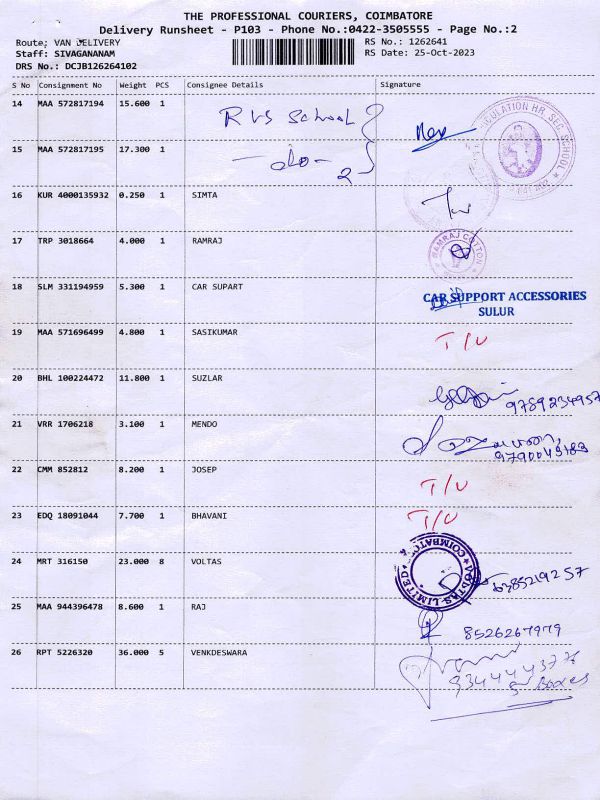 THE PROFESSIONAL COURIERS, COIMBATORE
Delivery Runsheet - P103 - Phone No.:0422-3505555 - Page No.:2
Route: VAN DELIVERY RS No.: 1262641
Staff: SIVAGANANAM RS Date: 25-Oct-2023
DRS No.: DCJB126264102
S No Consignment No Weight PCS Consignee Details Signature
14 MAA 572817194 15.600 1 RVS School
15 MAA 572817195 17.300 1 -do- 2
16 KUR 4000135932 0.250 1 SIMTA
17 TRP 3018664 4.000 1 RAMRAJ RAMRAJ COTTON
18 SLM 331194959 5.300 1 CAR SUPART CAR SUPPORT ACCESSORIES
SULUR
19 MAA 571696499 4.800 1 SASIKUMAR T/U
20 BHL 100224472 11.800 1 SUZLAR 9789234957
21 VRR 1706218 3.100 1 MENDO 9790049183
22 CMM 852812 8.200 1 JOSEP T/U
23 EDQ 18091044 7.700 1 BHAVANI T/U
24 MRT 316150 23.000 8 VOLTAS VOLTAS LIMITED COIMBATORE 6385219257
25 MAA 944396478 8.600 1 RAJ 8526267979
26 RPT 5226320 36.000 5 VENKDESWARA
5 Boxes